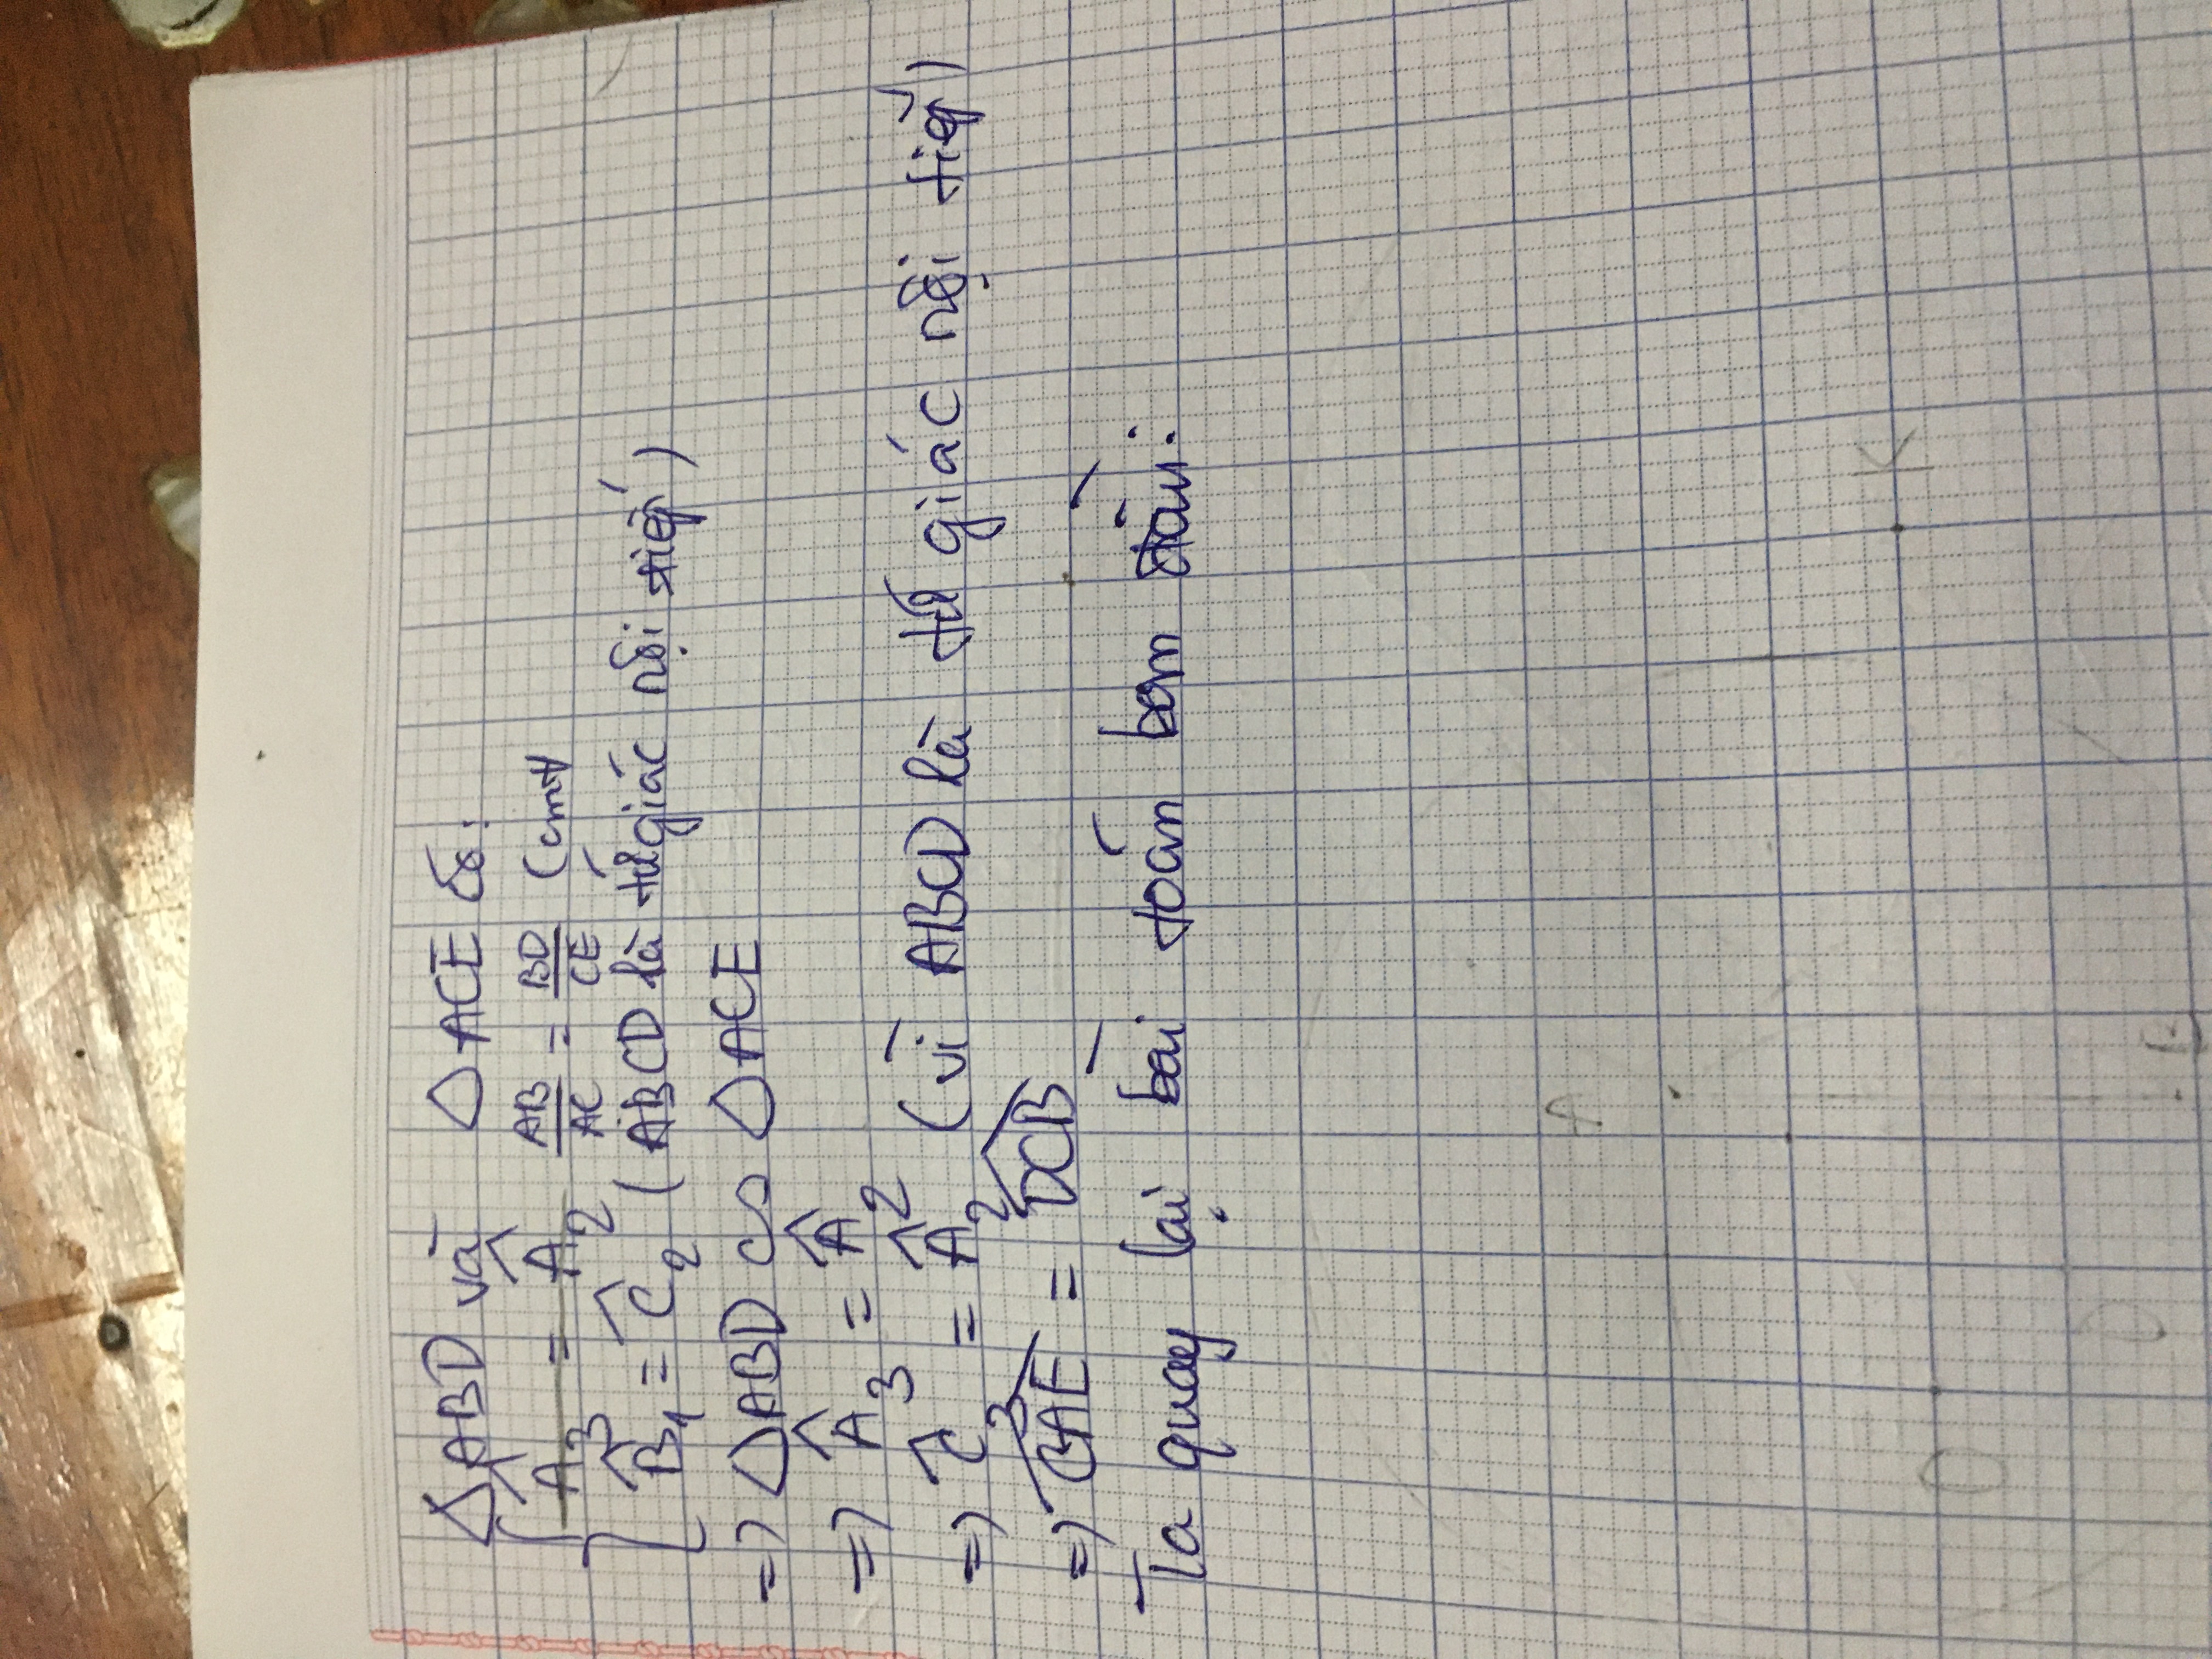 △ABD và △ACE có:
Â₃ = Â₂ AB/AC = BD/CE (cmt
B̂₁ = Ĉ₂ (ABCD là tứ giác nội tiếp)
=> △ABD ∽ △ACE
=> Â₃ = Â₂
=> Ĉ₃ = Â₂ (vì ABCD là tứ giác nội tiếp)
=> BAE = DCB
Ta quay lại bài toán ban đầu:
A
K
O
B